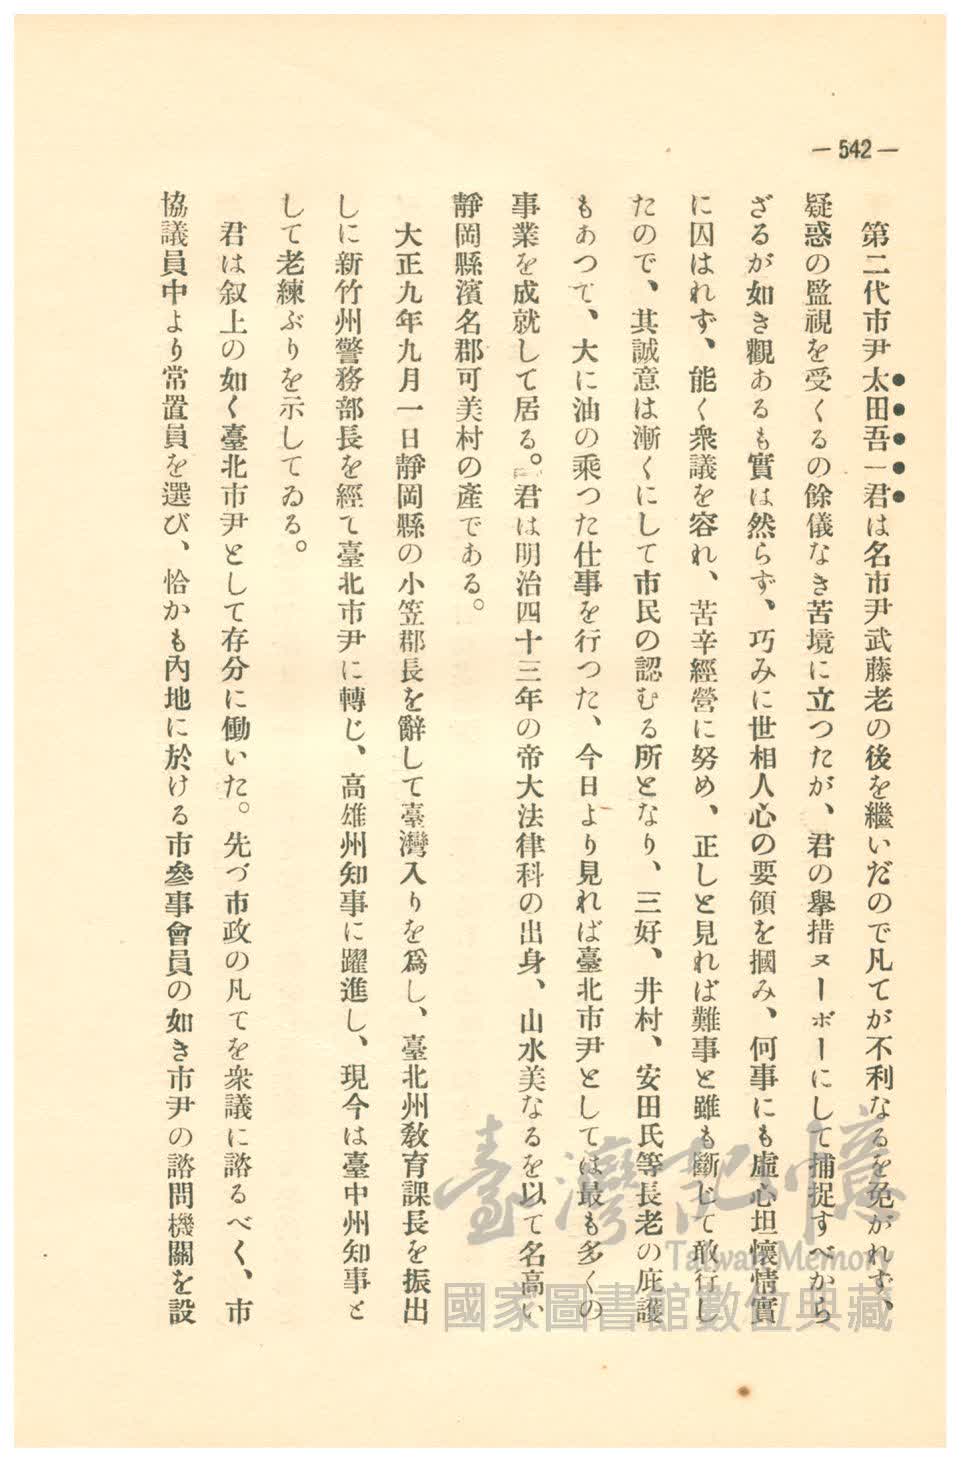 — 542 —
第二代市尹太田吾一君は名市尹武藤老の後を繼いだので凡てが不利なるを免がれず、
疑惑の監視を受くるの餘儀なき苦境に立つたが、君の擧措ヌーボーにして捕捉すべから
ざるが如き觀あるも實は然らず、巧みに世相人心の要領を摑み、何事にも虛心坦懷情實
に囚はれず、能く衆議を容れ、苦辛經營に努め、正しと見れば難事と雖も斷じて敢行し
たので、其誠意は漸くにして市民の認むる所となり、三好、井村、安田氏等長老の庇護
もあつて、大に油の乘つた仕事を行つた、今日より見れば臺北市尹としては最も多くの
事業を成就して居る。君は明治四十三年の帝大法律科の出身、山水美なるを以て名高い
靜岡縣濱名郡可美村の產である。
大正九年九月一日靜岡縣の小笠郡長を辭して臺灣入りを爲し、臺北州敎育課長を振出
しに新竹州警務部長を經て臺北市尹に轉じ、高雄州知事に躍進し、現今は臺中州知事と
して老練ぶりを示してゐる。
君は叙上の如く臺北市尹として存分に働いた。先づ市政の凡てを衆議に諮るべく、市
協議員中より常置員を選び、恰かも內地に於ける市參事會員の如き市尹の諮問機關を設
臺灣記憶
Taiwan Memory
國家圖書館數位典藏